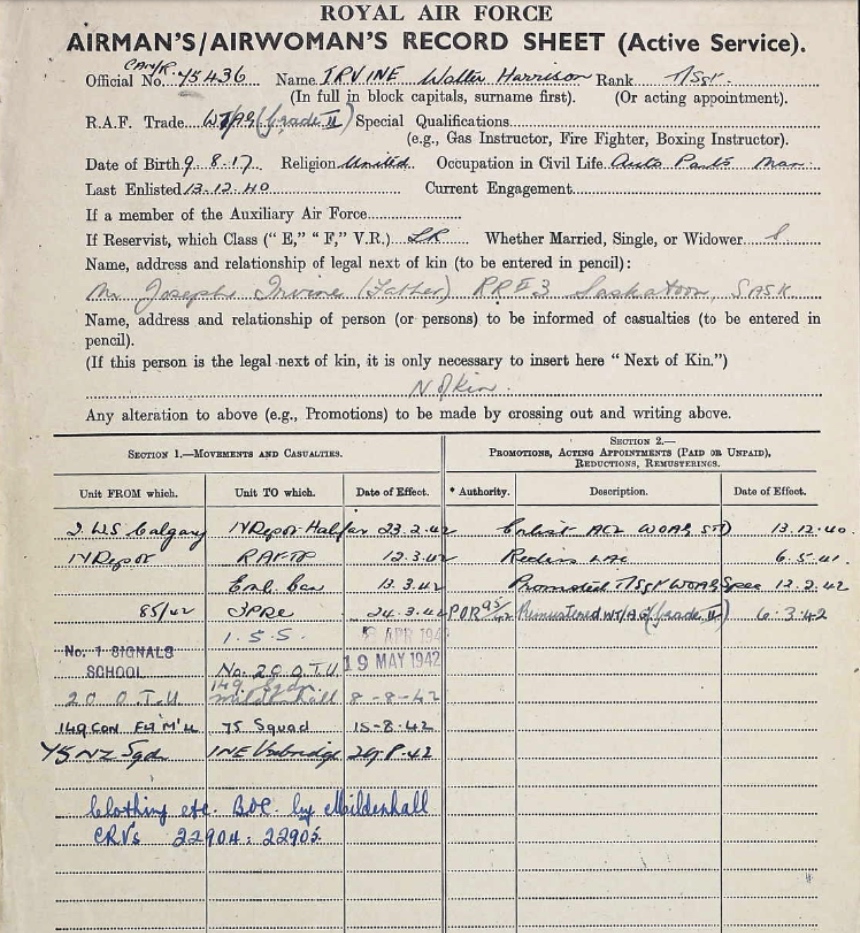 ROYAL AIR FORCE
AIRMAN'S/AIRWOMAN'S RECORD SHEET (Active Service).
CAN/R.
Official No. 75436 Name IRVINE Walter Harrison Rank T/Sgt.
(In full in block capitals, surname first). (Or acting appointment).
R.A.F. Trade WT/AG (Grade II) Special Qualifications
(e.g., Gas Instructor, Fire Fighter, Boxing Instructor).
Date of Birth 9.8.17. Religion United Occupation in Civil Life Auto Parts Man.
Last Enlisted 13.12.40 Current Engagement
If a member of the Auxiliary Air Force
If Reservist, which Class (" E," " F," V.R.) SR Whether Married, Single, or Widower S
Name, address and relationship of legal next of kin (to be entered in pencil):
Mr Joseph Irvine (Father) RR#3 Saskatoon, SASK
Name, address and relationship of person (or persons) to be informed of casualties (to be entered in
pencil).
(If this person is the legal next of kin, it is only necessary to insert here " Next of Kin.")
N of Kin.
Any alteration to above (e.g., Promotions) to be made by crossing out and writing above.
SECTION 1.—MOVEMENTS AND CASUALTIES.
SECTION 2.—
PROMOTIONS, ACTING APPOINTMENTS (PAID OR UNPAID),
REDUCTIONS, REMUSTERINGS.
Unit FROM which. Unit TO which. Date of Effect. * Authority. Description. Date of Effect.
2 WS Calgary 1Y Depot Halifax 23.2.42 Enlist AC2 WOAG STD 13.12.40
1Y Depot RAFTP 12.3.42 LAC 6.5.41.
Emb. Can 13.3.42 Promoted T/Sgt WOAG Spec 12.2.42
85/42 3PRC 24.3.42 POR 95/42 Remustered WT/AG (Grade II) 6.3.42
1.S.S. APR 194
No. 1 SIGNALS
SCHOOL No. 20 O.T.U. 19 MAY 1942
20 O.T.U 149 Sqdn Mildenhall 8-8-42
149 CON FLT M'LL 75 Squad 15-8-42
75 NZ Sqd NE Uxbridge 29-8-42
Clothing etc. BOC by Mildenhall
CRVs 22904: 22905.